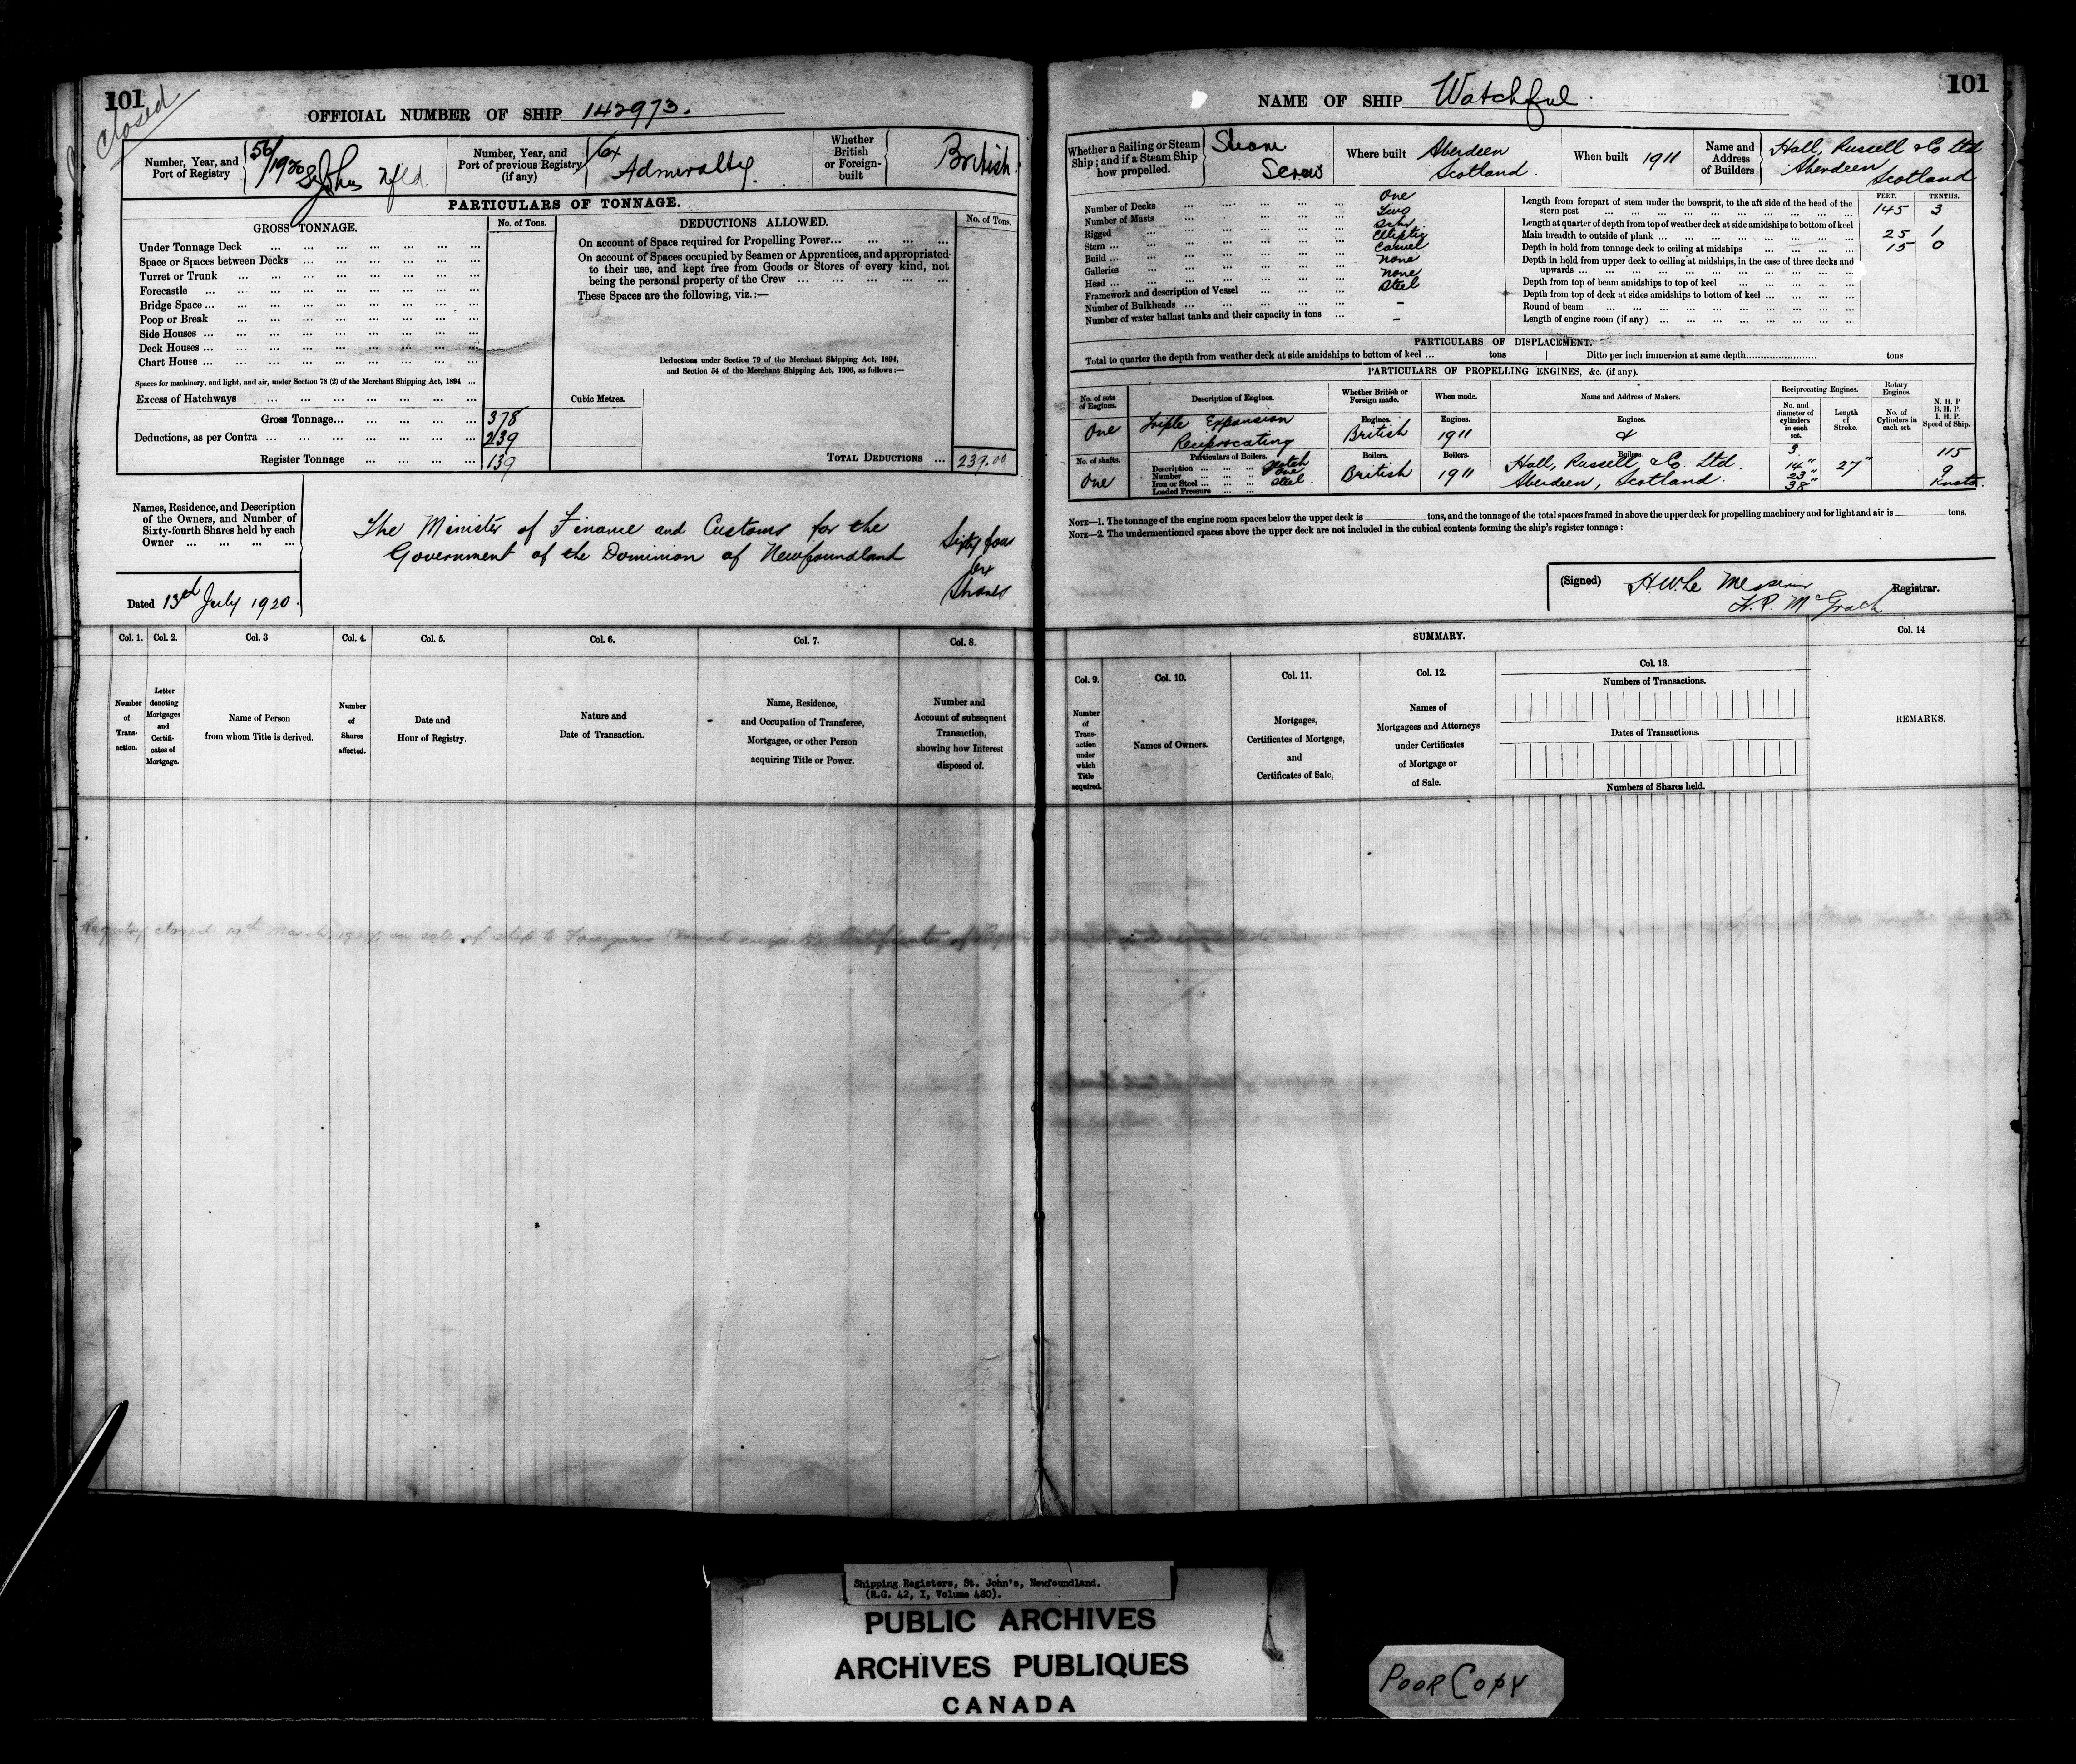 101
Closed
OFFICIAL NUMBER OF SHIP 142973.
Number, Year, and Port of Registry
56/1920 St Johns Nfld.
Number, Year, and Port of previous Registry (if any)
Ex Admiralty.
Whether British or Foreign-built
British.
PARTICULARS OF TONNAGE.
GROSS TONNAGE. No. of Tons.
Under Tonnage Deck
Space or Spaces between Decks
Turret or Trunk
Forecastle
Bridge Space
Poop or Break
Side Houses
Deck Houses
Chart House
Spaces for machinery, and light, and air, under Section 78 (2) of the Merchant Shipping Act, 1894
Excess of Hatchways
Gross Tonnage 378
Deductions, as per Contra 239
Register Tonnage 139
DEDUCTIONS ALLOWED. No. of Tons.
On account of Space required for Propelling Power
On account of Spaces occupied by Seamen or Apprentices, and appropriated
to their use, and kept free from Goods or Stores of every kind, not
being the personal property of the Crew
These Spaces are the following, viz.:—
Deductions under Section 79 of the Merchant Shipping Act, 1894,
and Section 54 of the Merchant Shipping Act, 1906, as follows:—
Cubic Metres.
TOTAL DEDUCTIONS 239.00
Names, Residence, and Description
of the Owners, and Number of
Sixty-fourth Shares held by each
Owner
The Minister of Finance and Customs for the
Government of the Dominion of Newfoundland
Sixty four
Shares
Dated 13th July 1920.
Col. 1. Col. 2. Col. 3 Col. 4. Col. 5. Col. 6. Col. 7. Col. 8.
Number of Trans-action.
Letter denoting Mortgages and Certifi-cates of Mortgage.
Name of Person from whom Title is derived.
Number of Shares affected.
Date and Hour of Registry.
Nature and Date of Transaction.
Name, Residence, and Occupation of Transferee, Mortgagee, or other Person acquiring Title or Power.
Number and Account of subsequent Transaction, showing how Interest disposed of.
Registry closed 19th March on sale of ship to Foreigners Certificate of
NAME OF SHIP Watchful
101
Whether a Sailing or Steam Ship; and if a Steam Ship how propelled.
Steam
Screw
Where built Aberdeen
Scotland.
When built 1911
Name and Address of Builders
Hall, Russell & Co Ltd
Aberdeen
Scotland
Number of Decks One
Number of Masts Two
Rigged Schr
Stern Elliptic
Build Carvel
Galleries None
Head None
Framework and description of Vessel Steel
Number of Bulkheads –
Number of water ballast tanks and their capacity in tons –
FEET. TENTHS.
Length from forepart of stem under the bowsprit, to the aft side of the head of the
stern post 145 3
Length at quarter of depth from top of weather deck at side amidships to bottom of keel
Main breadth to outside of plank 25 1
Depth in hold from tonnage deck to ceiling at midships 15 0
Depth in hold from upper deck to ceiling at midships, in the case of three decks and
upwards
Depth from top of beam amidships to top of keel
Depth from top of deck at sides amidships to bottom of keel
Round of beam
Length of engine room (if any)
PARTICULARS OF DISPLACEMENT.
Total to quarter the depth from weather deck at side amidships to bottom of keel ... tons Ditto per inch immersion at same depth tons
PARTICULARS OF PROPELLING ENGINES, &c. (if any).
No. of sets of Engines. Description of Engines. Whether British or Foreign made. When made. Name and Address of Makers. Reciprocating Engines. Rotary Engines
No. and diameter of cylinders in each set. Length of Stroke. No. of Cylinders in each set. N. H. P. B. H. P. I. H. P. Speed of Ship.
One Triple Expansion
Reciprocating
Engines. British Engines. 1911 Engines. &
No. of shafts. One
Particulars of Boilers.
Description
Number One
Iron or Steel Steel
Loaded Pressure
Boilers. British Boilers. 1911 Boilers. Hall, Russell & Co. Ltd.
Aberdeen, Scotland.
3
14"
23"
38"
27"
115
9
Knots.
NOTE—1. The tonnage of the engine room spaces below the upper deck is tons, and the tonnage of the total spaces framed in above the upper deck for propelling machinery and for light and air is tons.
NOTE—2. The undermentioned spaces above the upper deck are not included in the cubical contents forming the ship's register tonnage:
(Signed) H. W. Le Messurier
H. P. McGrath
Registrar.
SUMMARY.
Col. 9. Col. 10. Col. 11. Col. 12. Col. 13. Col. 14
Number of Trans-action under which Title acquired.
Names of Owners.
Mortgages, Certificates of Mortgage, and Certificates of Sale,
Names of Mortgagees and Attorneys under Certificates of Mortgage or of Sale.
Numbers of Transactions.
Dates of Transactions.
Numbers of Shares held.
REMARKS.
Shipping Registers, St. John's, Newfoundland.
(R.G. 42, I, Volume 480).
PUBLIC ARCHIVES
ARCHIVES PUBLIQUES
CANADA
POOR COPY